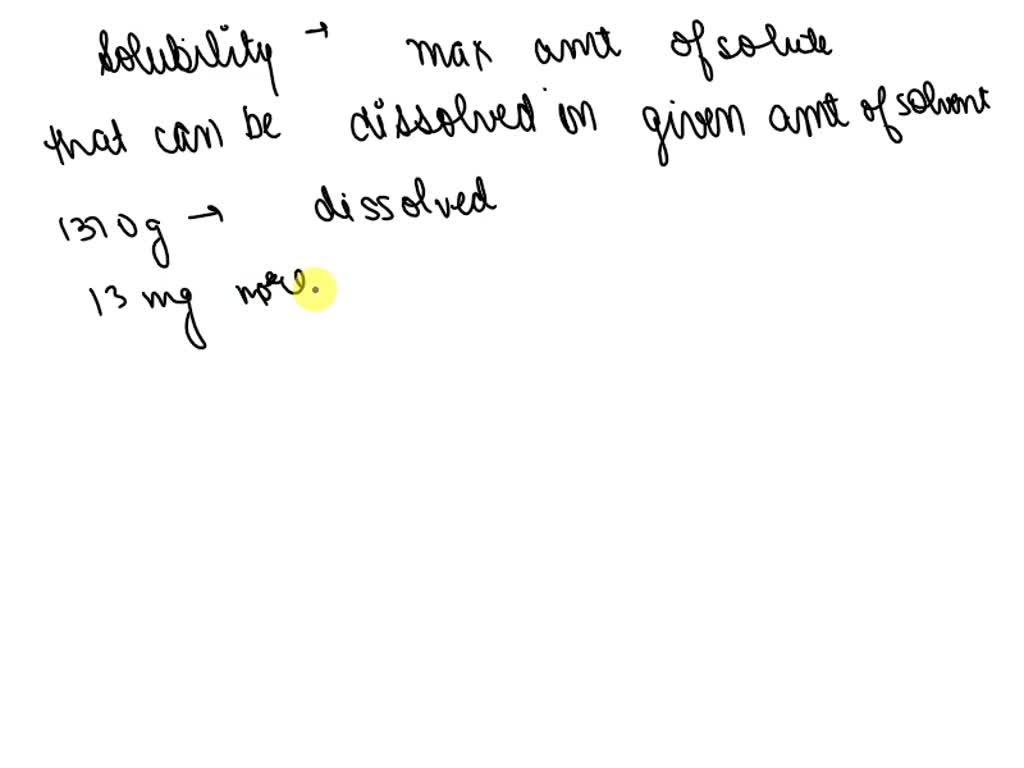 Solubility → max amt of solute
that can be dissolved in given amt of solvent
1370g → dissolved
13 mg more